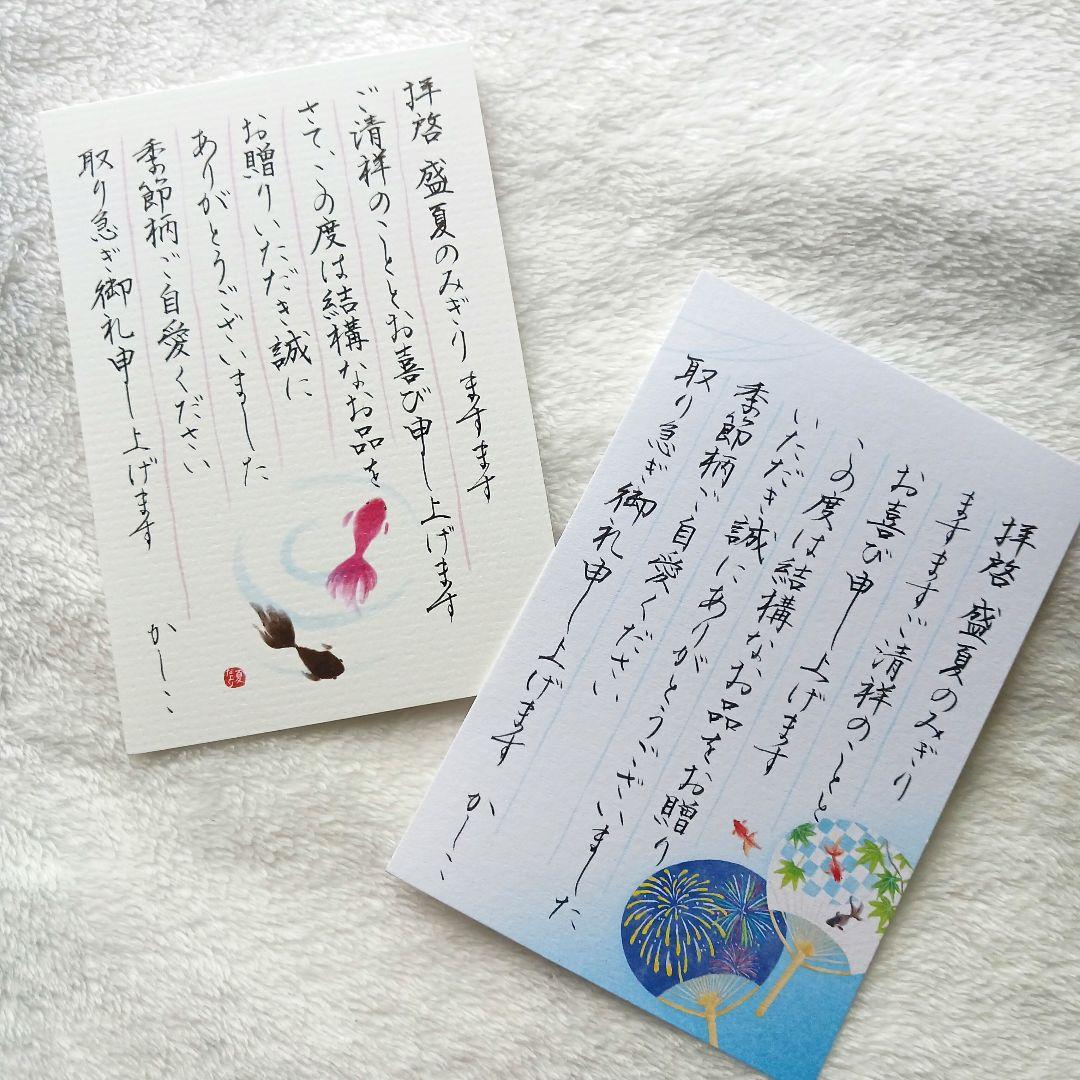 拝啓 盛夏のみぎり ますます
ご清祥のこととお喜び申し上げます
さて、この度は結構なお品を
お贈りいただき誠に
ありがとうございました
季節柄ご自愛ください
取り急ぎ御礼申し上げます
かしこ
夏だより
拝啓 盛夏のみぎり
ますますご清祥のことと
お喜び申し上げます
この度は結構なお品をお贈り
いただき誠にありがとうございました
季節柄ご自愛ください
取り急ぎ御礼申し上げます
かしこ